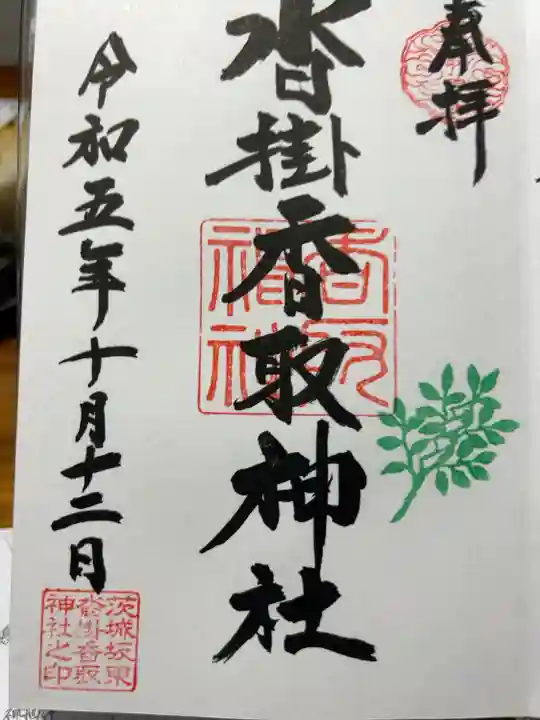 奉拝
沓掛香取神社
令和五年十月十二日
茨城坂東
沓掛香取
神社之印